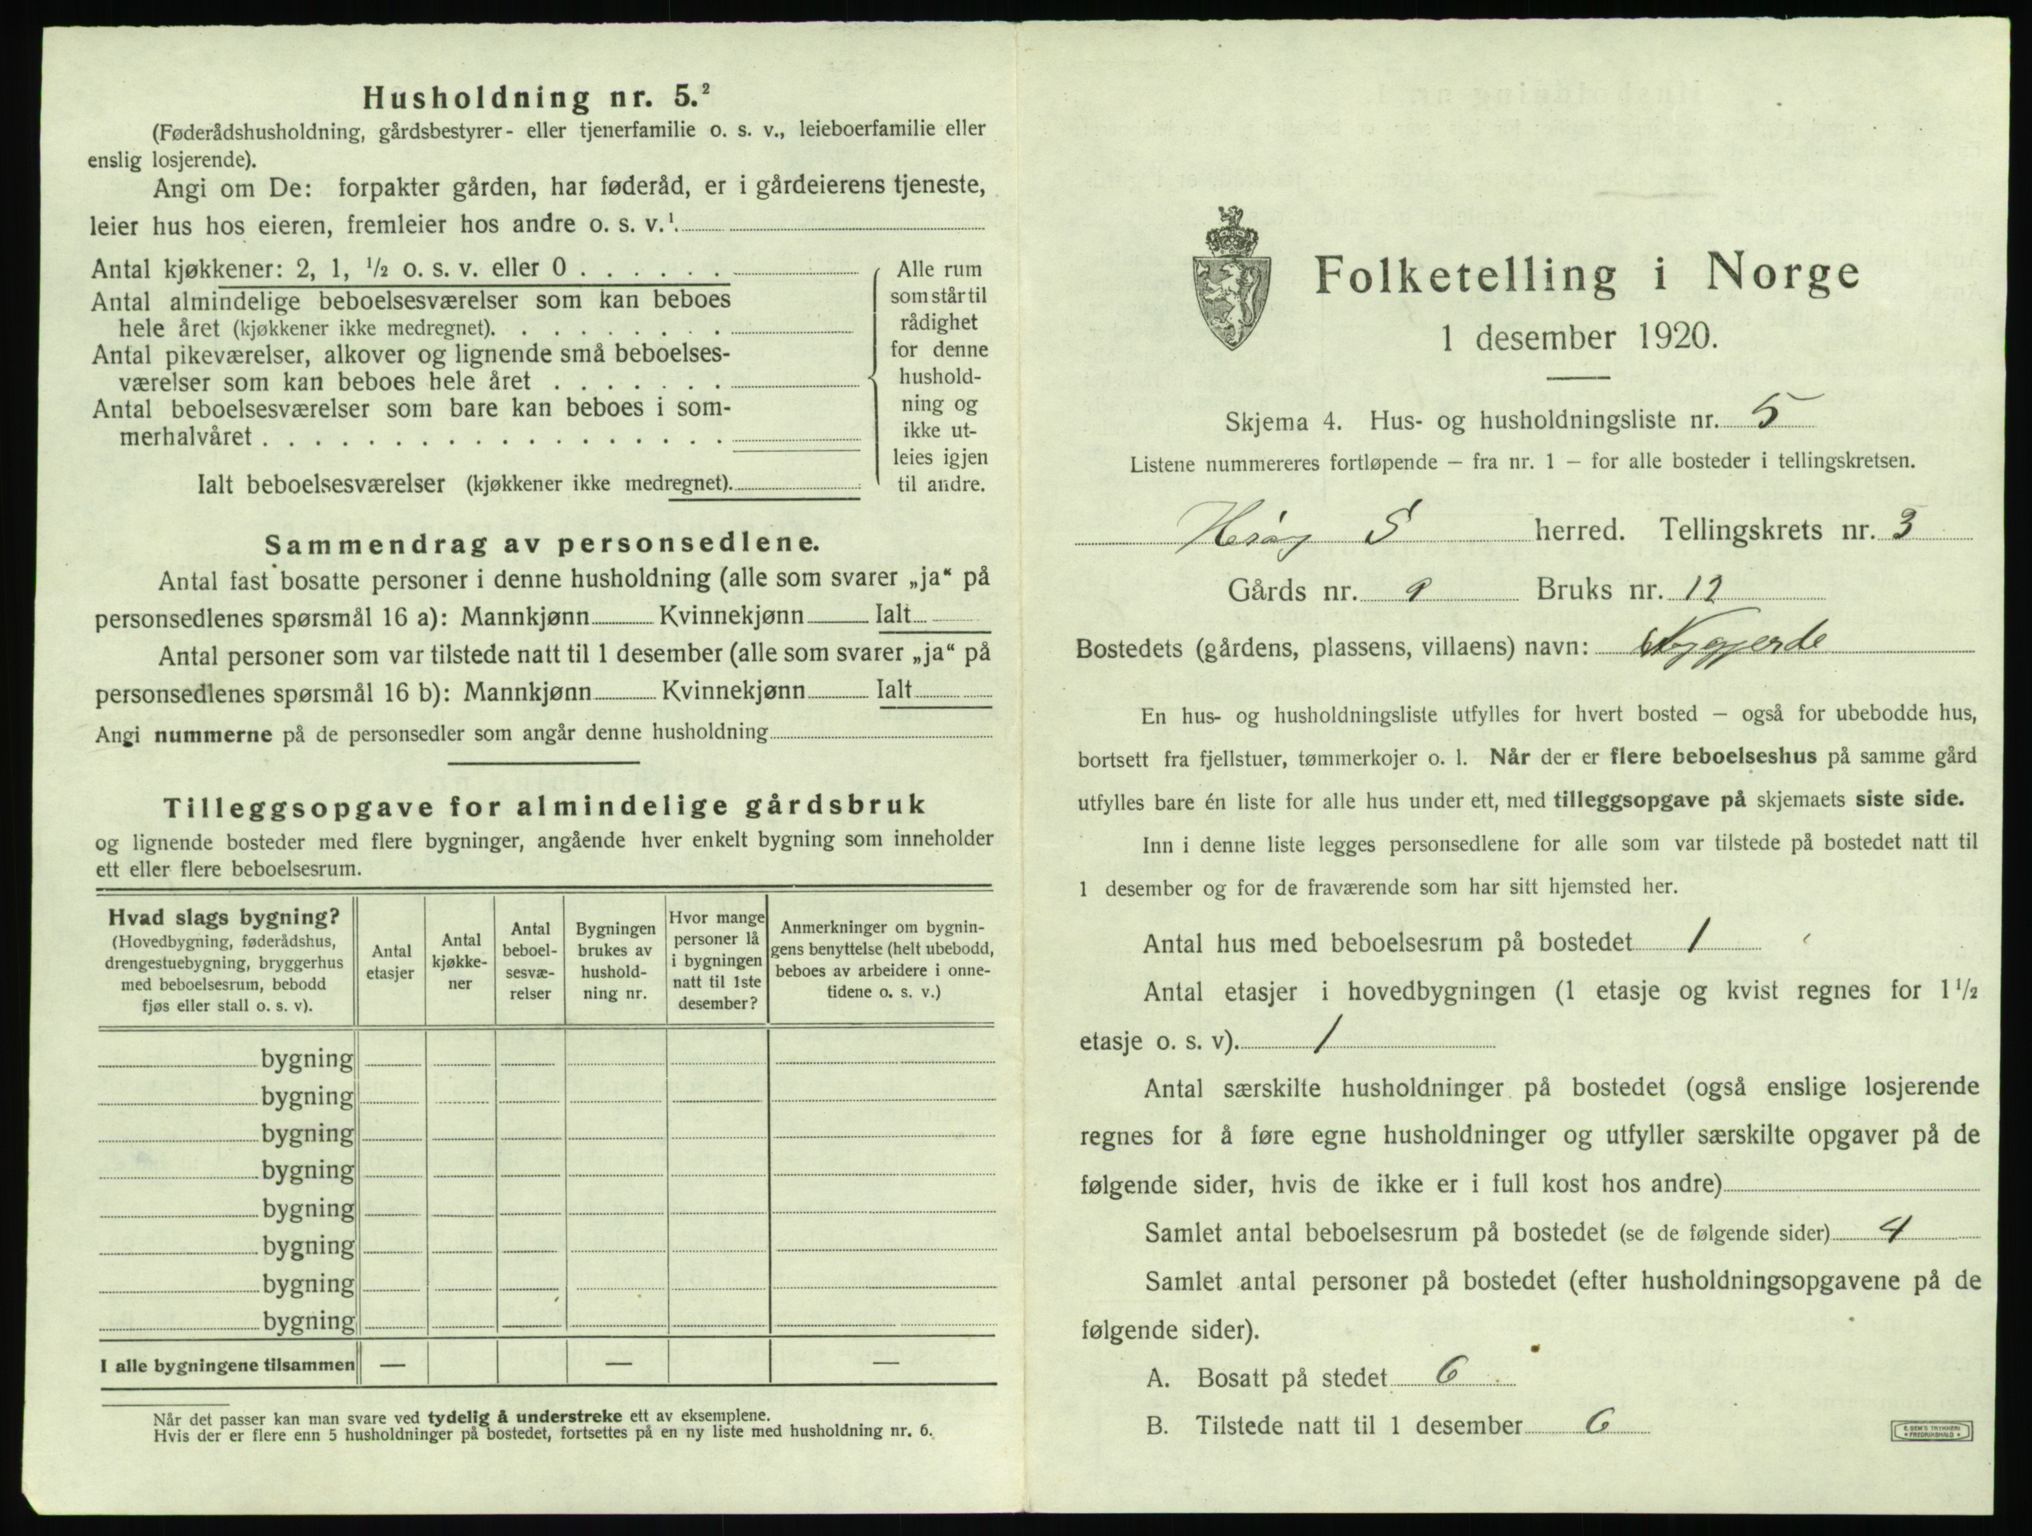 Husholdning nr. 5.²
(Føderådshusholdning, gårdsbestyrer- eller tjenerfamilie o. s. v., leieboerfamilie eller
enslig losjerende).
Angi om De: forpakter gården, har føderåd, er i gårdeierens tjeneste,
leier hus hos eieren, fremleier hos andre o. s. v.¹
Antal kjøkkener: 2, 1, ½ o. s. v. eller 0
Antal almindelige beboelsesværelser som kan beboes
hele året (kjøkkener ikke medregnet).
Antal pikeværelser, alkover og lignende små beboelses-
værelser som kan beboes hele året
Antal beboelsesværelser som bare kan beboes i som-
merhalvåret
Ialt beboelsesværelser (kjøkkener ikke medregnet).
Alle rum
som står til
rådighet
for denne
hushold-
ning og
ikke ut-
leies igjen
til andre.
Sammendrag av personsedlene.
Antal fast bosatte personer i denne husholdning (alle som svarer „ja“ på
personsedlenes spørsmål 16 a): Mannkjønn Kvinnekjønn Ialt
Antal personer som var tilstede natt til 1 desember (alle som svarer „ja“ på
personsedlenes spørsmål 16 b): Mannkjønn Kvinnekjønn Ialt
Angi nummerne på de personsedler som angår denne husholdning
Tilleggsopgave for almindelige gårdsbruk
og lignende bosteder med flere bygninger, angående hver enkelt bygning som inneholder
ett eller flere beboelsesrum.
Hvad slags bygning?
(Hovedbygning, føderådshus,
drengestuebygning, bryggerhus
med beboelsesrum, bebodd
fjøs eller stall o. s. v).
Antal
etasjer
Antal
kjøkke-
ner
Antal
beboel-
sesvæ-
relser
Bygningen
brukes av
hushold-
ning nr.
Hvor mange
personer lå
i bygningen
natt til 1ste
desember?
Anmerkninger om bygnin-
gens benyttelse (helt ubebodd,
beboes av arbeidere i onne-
tidene o. s. v.)
bygning
bygning
bygning
bygning
bygning
bygning
bygning
bygning
I alle bygningene tilsammen — — —
Når det passer kan man svare ved tydelig å understreke ett av eksemplene.
Hvis der er flere enn 5 husholdninger på bostedet, fortsettes på en ny liste med husholdning nr. 6.
Folketelling i Norge
1 desember 1920.
Skjema 4. Hus- og husholdningsliste nr. 5
Listene nummereres fortløpende – fra nr. 1 – for alle bosteder i tellingskretsen.
Herøy S herred. Tellingskrets nr. 3
Gårds nr. 9 Bruks nr. 12
Bostedets (gårdens, plassens, villaens) navn: Nygjerde
En hus- og husholdningsliste utfylles for hvert bosted – også for ubebodde hus,
bortsett fra fjellstuer, tømmerkojer o. l. Når der er flere beboelseshus på samme gård
utfylles bare én liste for alle hus under ett, med tilleggsopgave på skjemaets siste side.
Inn i denne liste legges personsedlene for alle som var tilstede på bostedet natt til
1 desember og for de fraværende som har sitt hjemsted her.
Antal hus med beboelsesrum på bostedet 1
Antal etasjer i hovedbygningen (1 etasje og kvist regnes for 1½
etasje o. s. v). 1
Antal særskilte husholdninger på bostedet (også enslige losjerende
regnes for å føre egne husholdninger og utfyller særskilte opgaver på de
følgende sider, hvis de ikke er i full kost hos andre)
Samlet antal beboelsesrum på bostedet (se de følgende sider) 4
Samlet antal personer på bostedet (efter husholdningsopgavene på de
følgende sider).
A. Bosatt på stedet 6
B. Tilstede natt til 1 desember 6
E. SEM'S TRYKKERI
FREDRIKSHALD